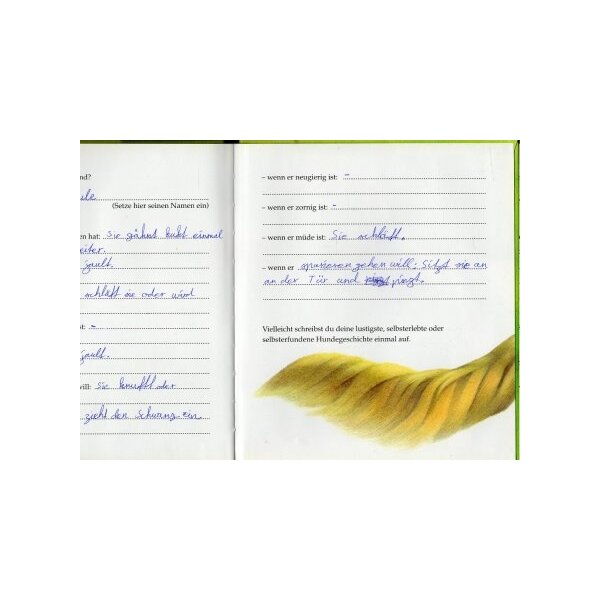 nd?
ule
(Setze hier seinen Namen ein)
en hat: Sie gähnt kukt einmal
eiter.
jault.
schläft sie oder wird
t: -
jault.
will: Sie knufft der
zieht den Schwanz ein
– wenn er neugierig ist: -
– wenn er zornig ist: -
– wenn er müde ist: Sie schläft.
– wenn er spazieren gehen will: Sitzt sie an
an der Tür und
Vielleicht schreibst du deine lustigste, selbsterlebte oder
selbsterfundene Hundegeschichte einmal auf.